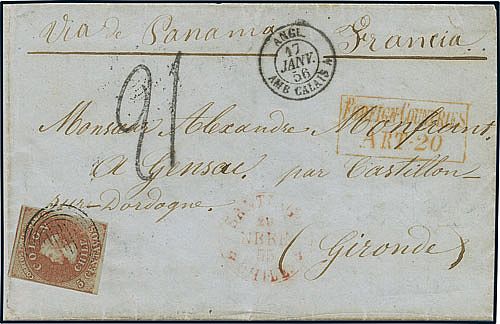 Via de Panama Francia
ANGL.
17
JANV.
56
AMB. CALAIS A
21
FOREIGN COUNTRIES
ART-20
Monsieur Alexandre
A Gensac par Castillon-
sur-Dordogne
(Gironde)
SANTIAGO
CHILE
COLON